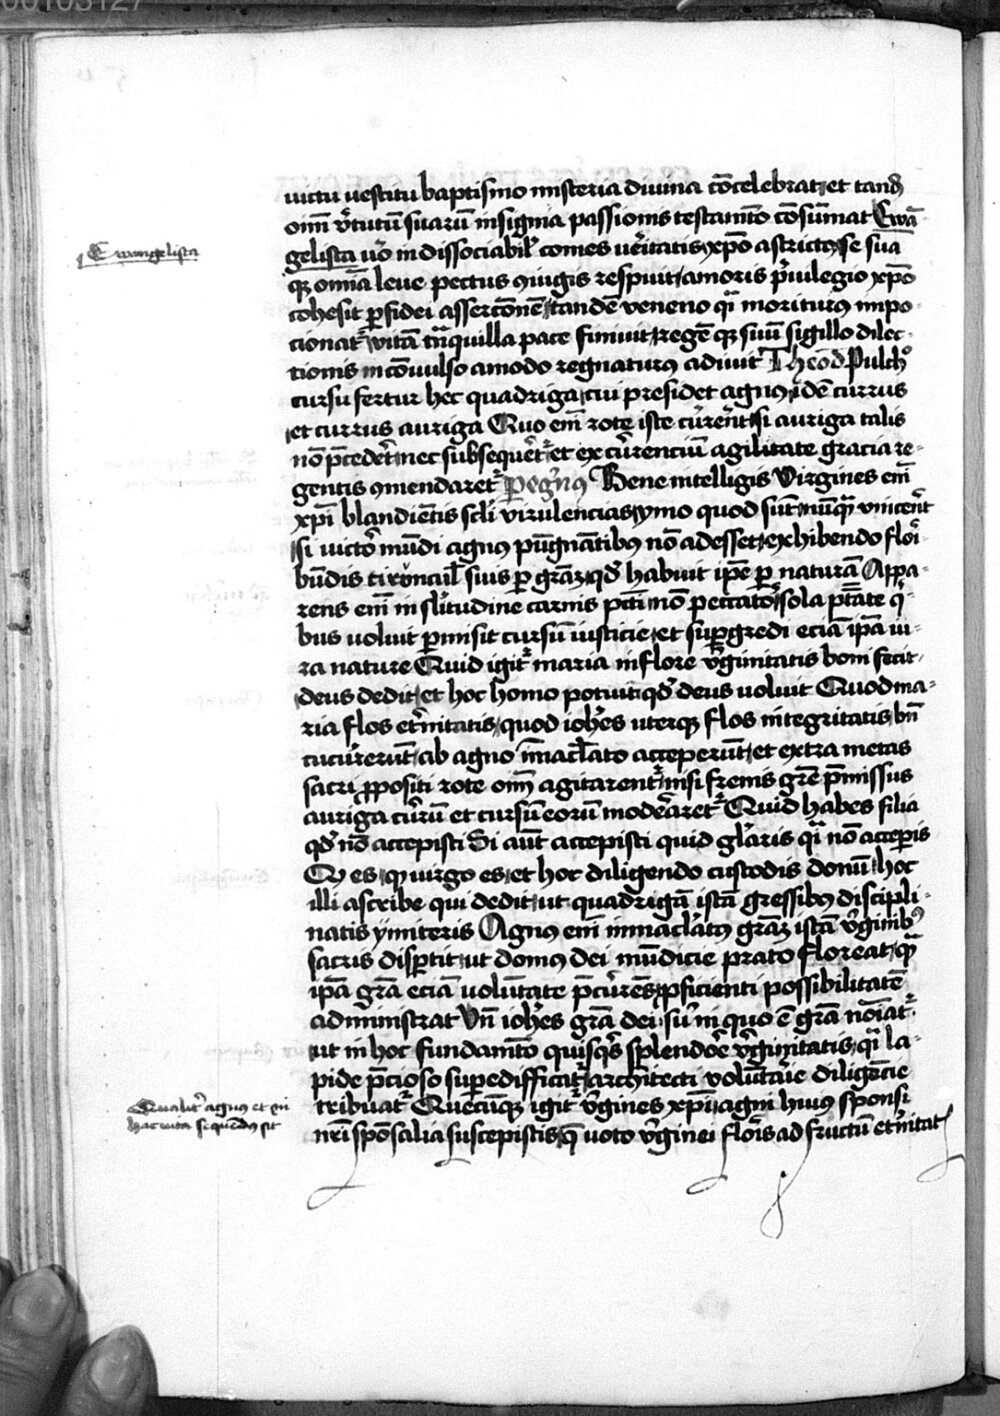 00103127
uictu uestitu baptismo misteria diuina cōcelebrat et tand᷑
oīm v̓tutū suarū insignia passionis testamēto cōsūmat Ewā
gelista uo᷑ indissociabil᷑ comes ueritatis xp̄o astricto se suā
qꝫ omīa leue pectus ꝯiugis respuit amoris p̓uilegio xp̄o
cohesit ꝑfidei assercōnē tandē veneno qͣ moriturꝰ impo
cionatᷣ vitā tͣnquilla pace finiuit regē qꝫ suū sigillo dilec
tionis incōuulso amodo regnaturꝰ adiuit Theod Pulchͦ
cursu fertur hec quadriga cui presidet agnus idē currus
et currus auriga Quo em̄ rote iste cu᷑rēt si auriga talis
nō p̄cedet᷑ nec subsequet᷑ᷣ et ex cu᷑renciū agilitate gracia re
gentis ꝯmendaretᷣ Peg᷑nꝰ Bene intelligis Virgines em̄
xp̄i blandiētis scl̓i virulencias ymo quod sūt nūqͣ vincerēt
si uicto᷑ mūdi agnus pūgnātibꝰ nō adesset exhibendo flori
būdis tirūcul᷑ suis ꝑ grāꝫ qd᷑ habuit ip̄e ꝑ naturā Appa
rens em̄ in sl̓itudine carnis pcc̄ti nō peccatoꝝ sola ptāte qͥ
bus voluit ꝑmisit cursū iusticie et suꝑgredi eciā ip̄a iu
ra nature Quid igitᷣ maria in flore v̓ginitatis boni fecit
deus dedit et hoc homo potuit qd᷑ deus uoluit Quod ma
ria flos et᷑nitatis quod ioh̄es uterqꝫ flos integritatis bn̄
cucu᷑rerūt ab agno īmacl̓ato acceperūt et extra metas
sacri ꝓpositi rote oīm agitarentᷣ nisi frenis grē p̄missus
auriga cu᷑rū et cursū eorū moderaretᷣ Quid habes filia
qd᷑ nō accepisti Si aūt accepisti quid gl̓aris qͣ nō acceperis
Q es qꝫ uirgo es et hoc diligendo custodis donū hoc
illi ascribe qui dedit ut quadrigā istā gressibus discipli
natis ymiteris Agnus em̄ inmacl̓atus grāꝫ istā v̓ginibꝰ
sacris disꝑtit ut domus dei mūdicie prato floreat qͣ
ip̄a grā eciā uolūtate p̄cu᷑rēs ꝓficienti possibilitatē
administrat Vn̄ ioh̄es grā dei siu᷑ in quo ē grā noīatᷣ
ut in hoc fundamēto quisqꝫ splendoꝝ v̓ginitatis qͣ la
pide p̄cioso superedifficatᷣ architecti volūtarie diligēcie
tribuatᷣ Quecūqꝫ igitᷣ v̓gines xp̄i agni huius sponsi
nr̄i spōsalia suscepistis qͣ uoto v̓ginei floris ad fructū et᷑nitat᷑
Ewangelista
Qualit᷑ agnus et in
hac uita sequēdꝰ sit